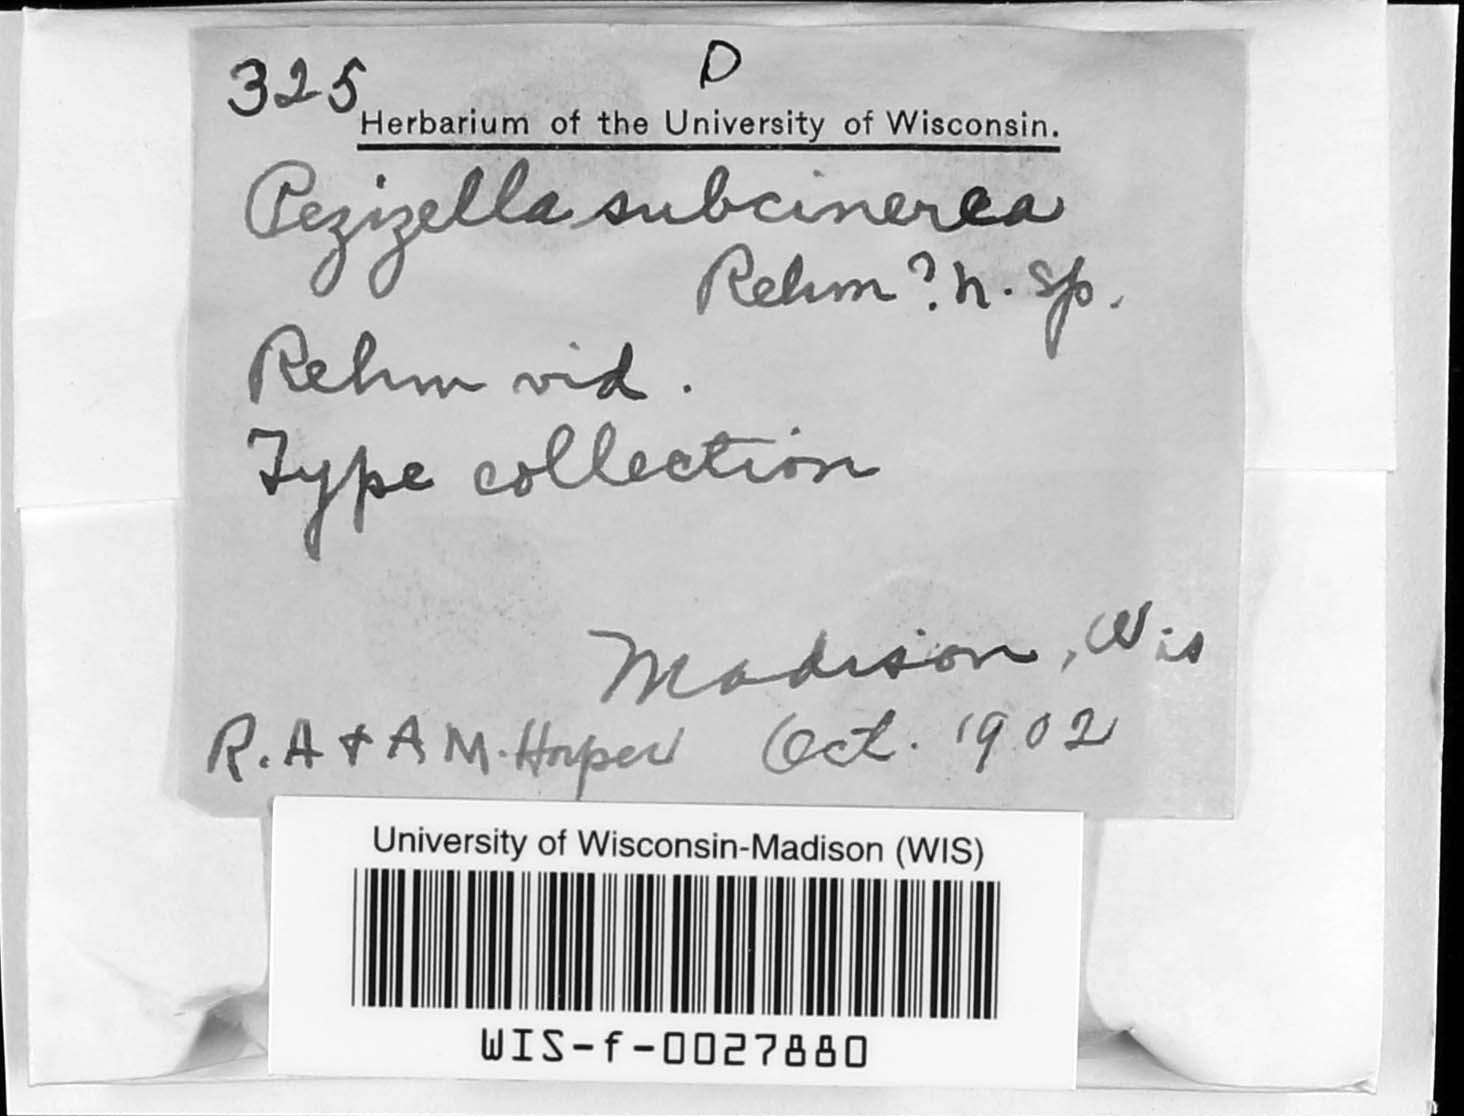 325 D
Herbarium of the University of Wisconsin.
Pezizella subcinerea
Rehm? n. sp.
Rehm vid.
Type collection
Madison, Wis
R. A & A M. Harper Oct. 1902
University of Wisconsin-Madison (WIS)
WIS-f-0027880